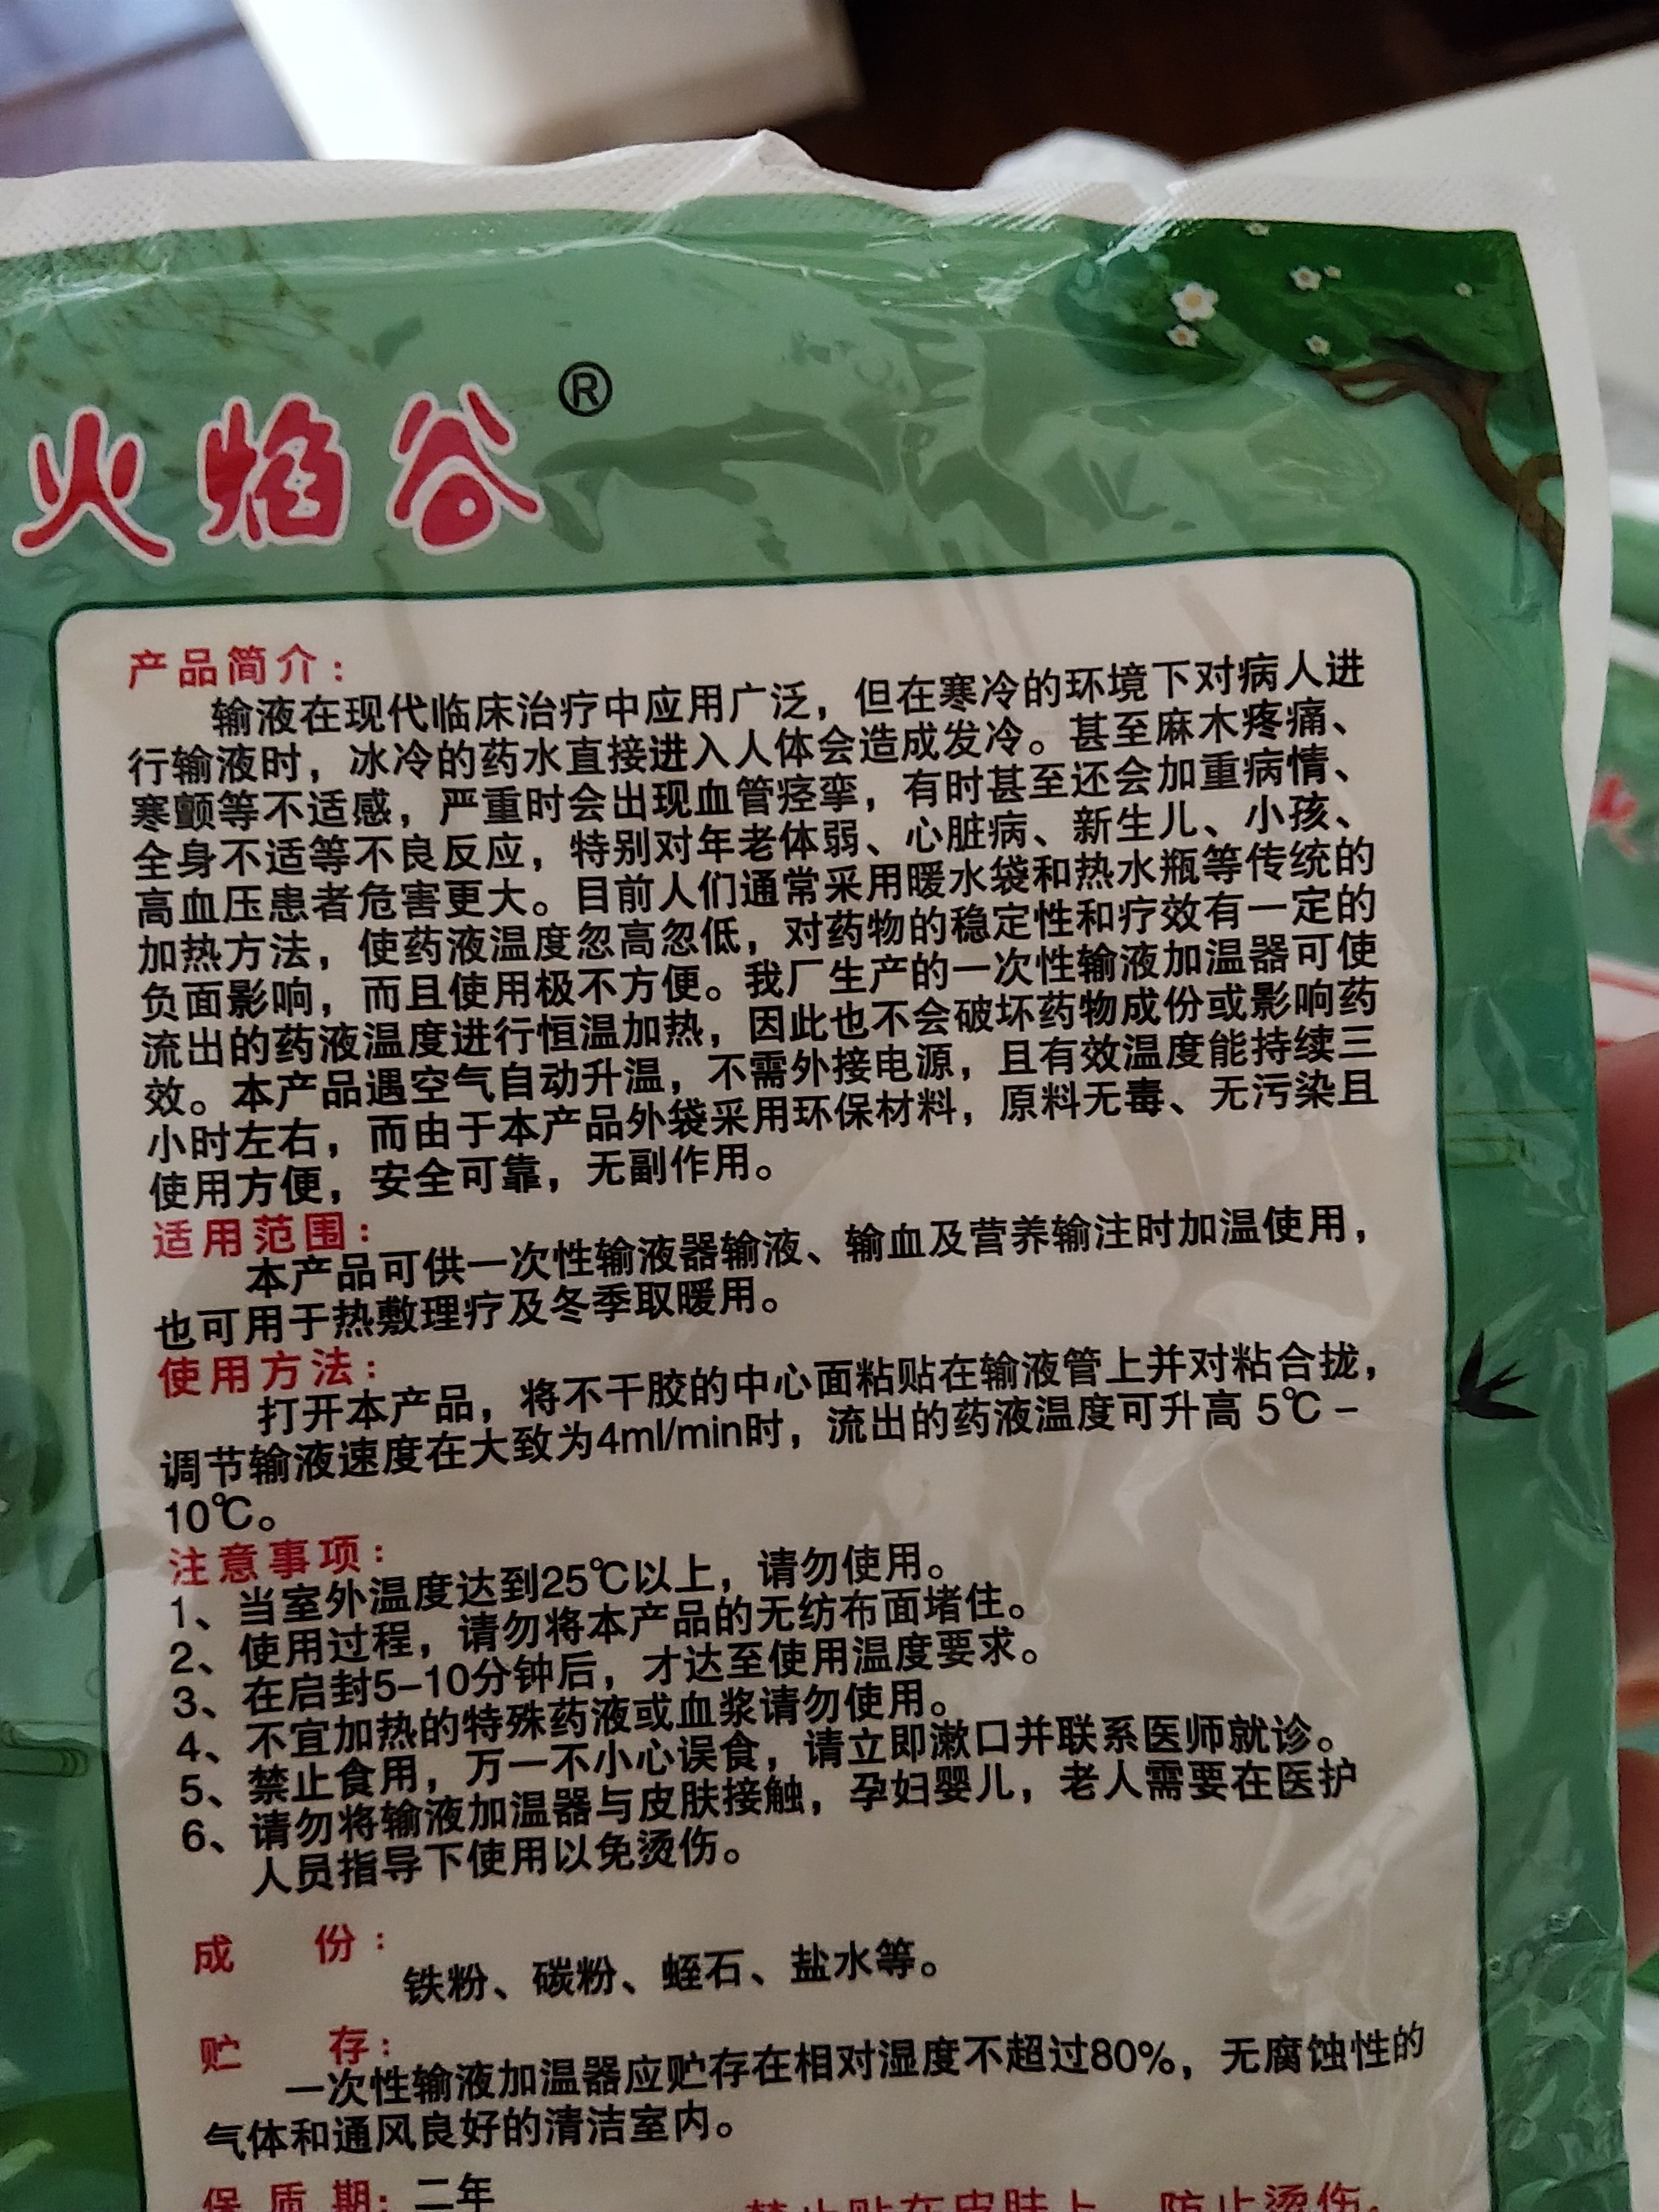 火焰谷®
产品简介：
输液在现代临床治疗中应用广泛，但在寒冷的环境下对病人进
行输液时，冰冷的药水直接进入人体会造成发冷。甚至麻木疼痛、
寒颤等不适感，严重时会出现血管痉挛，有时甚至还会加重病情、
全身不适等不良反应，特别对年老体弱、心脏病、新生儿、小孩、
高血压患者危害更大。目前人们通常采用暖水袋和热水瓶等传统的
加热方法，使药液温度忽高忽低，对药物的稳定性和疗效有一定的
负面影响，而且使用极不方便。我厂生产的一次性输液加温器可使
流出的药液温度进行恒温加热，因此也不会破坏药物成份或影响药
效。本产品遇空气自动升温，不需外接电源，且有效温度能持续三
小时左右，而由于本产品外袋采用环保材料，原料无毒、无污染且
使用方便，安全可靠，无副作用。
适用范围：
本产品可供一次性输液器输液、输血及营养输注时加温使用，
也可用于热敷理疗及冬季取暖用。
使用方法：
打开本产品，将不干胶的中心面粘贴在输液管上并对粘合拢，
调节输液速度在大致为4ml/min时，流出的药液温度可升高 5℃－
10℃。
注意事项：
1、当室外温度达到25℃以上，请勿使用。
2、使用过程，请勿将本产品的无纺布面堵住。
3、在启封5–10分钟后，才达至使用温度要求。
4、不宜加热的特殊药液或血浆请勿使用。
5、禁止食用，万一不小心误食，请立即漱口并联系医师就诊。
6、请勿将输液加温器与皮肤接触，孕妇婴儿，老人需要在医护
人员指导下使用以免烫伤。
成 份：
铁粉、碳粉、蛭石、盐水等。
贮 存：
一次性输液加温器应贮存在相对湿度不超过80%，无腐蚀性的
气体和通风良好的清洁室内。
保 质 期：二年
禁止贴在皮肤上，防止烫伤。